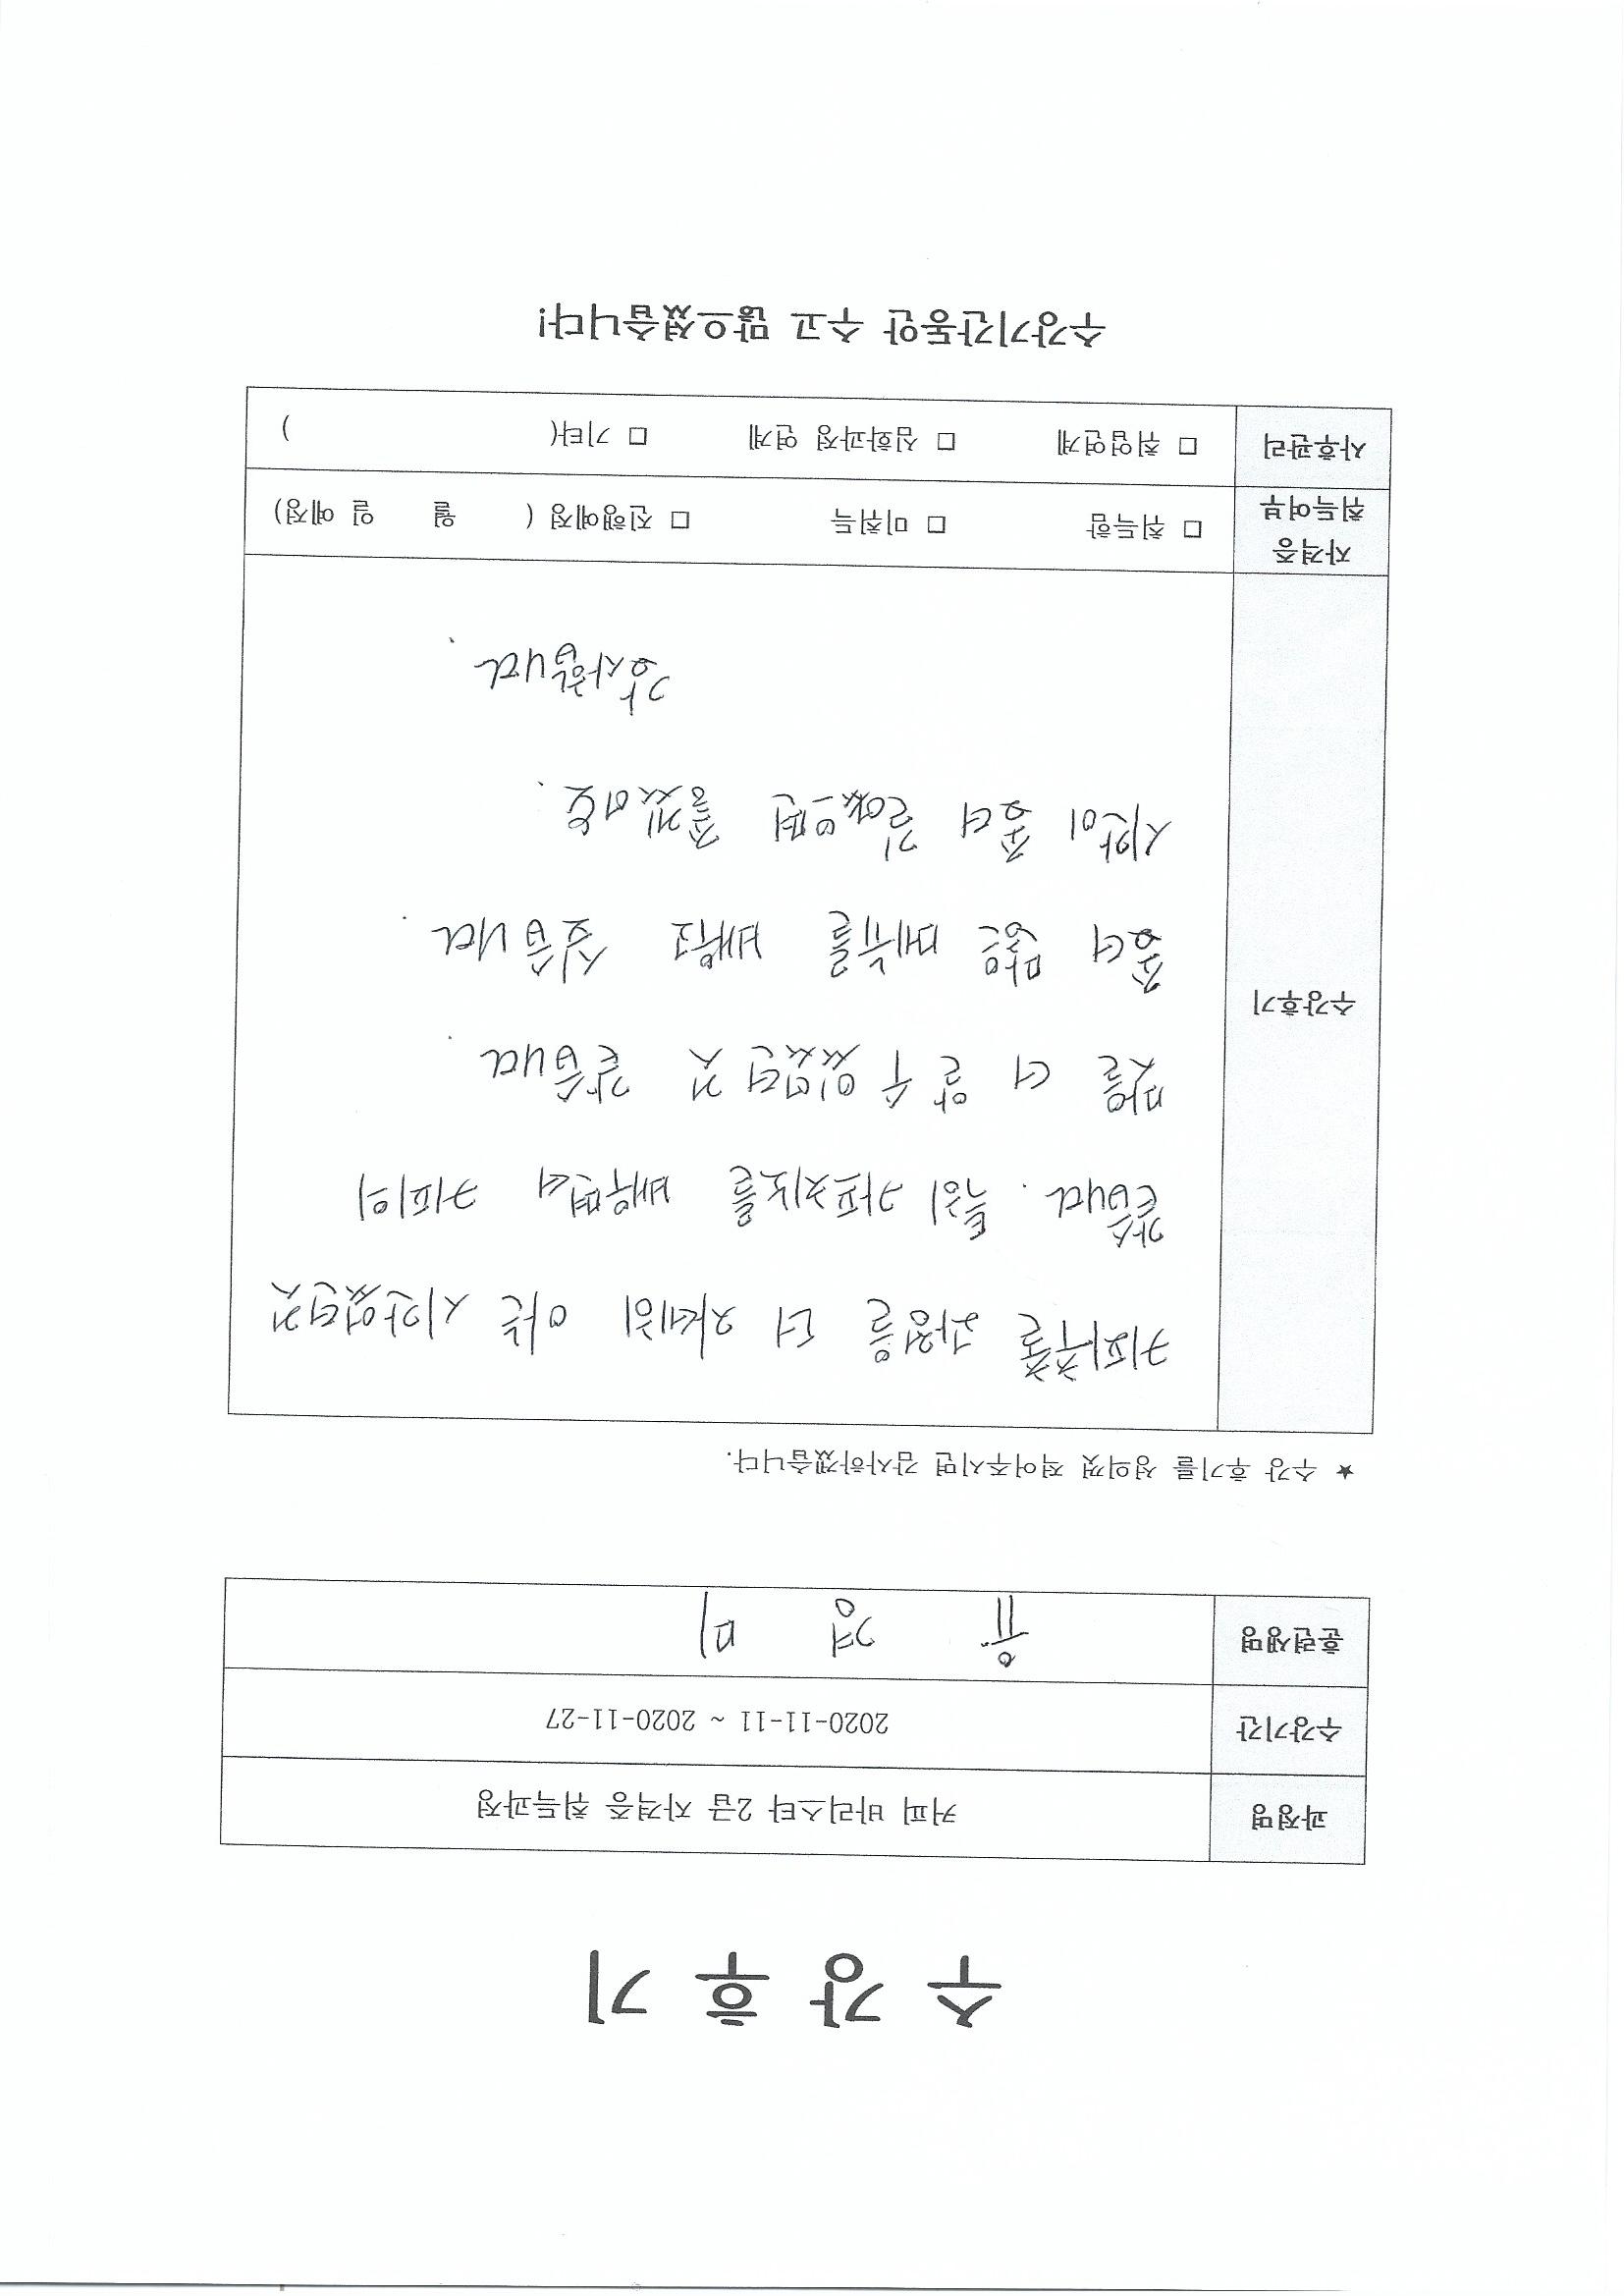 수 강 후 기
과정명 커피 바리스타 2급 자격증 취득과정
수강기간 2020-11-11 ~ 2020-11-27
훈련생명 유 경 미
★ 수강 후기를 성의껏 적어주시면 감사하겠습니다.
수강후기
커피추출 과정을 더 자세히 아는 시간이었던것
같습니다. 특히 카푸치노를 배우면서 커피의
맛을 더 알 수 있었던 것 같습니다.
좀더 많은 메뉴를 배우고 싶습니다.
시간이 좀더 길었으면 좋겠어요.
감사합니다.
자격증
취득여부 □ 취득함 □ 미취득 □ 진행예정 ( 월 일 예정)
사후관리 □ 취업연계 □ 심화과정 연계 □ 기타( )
수강기간동안 수고 많으셨습니다!